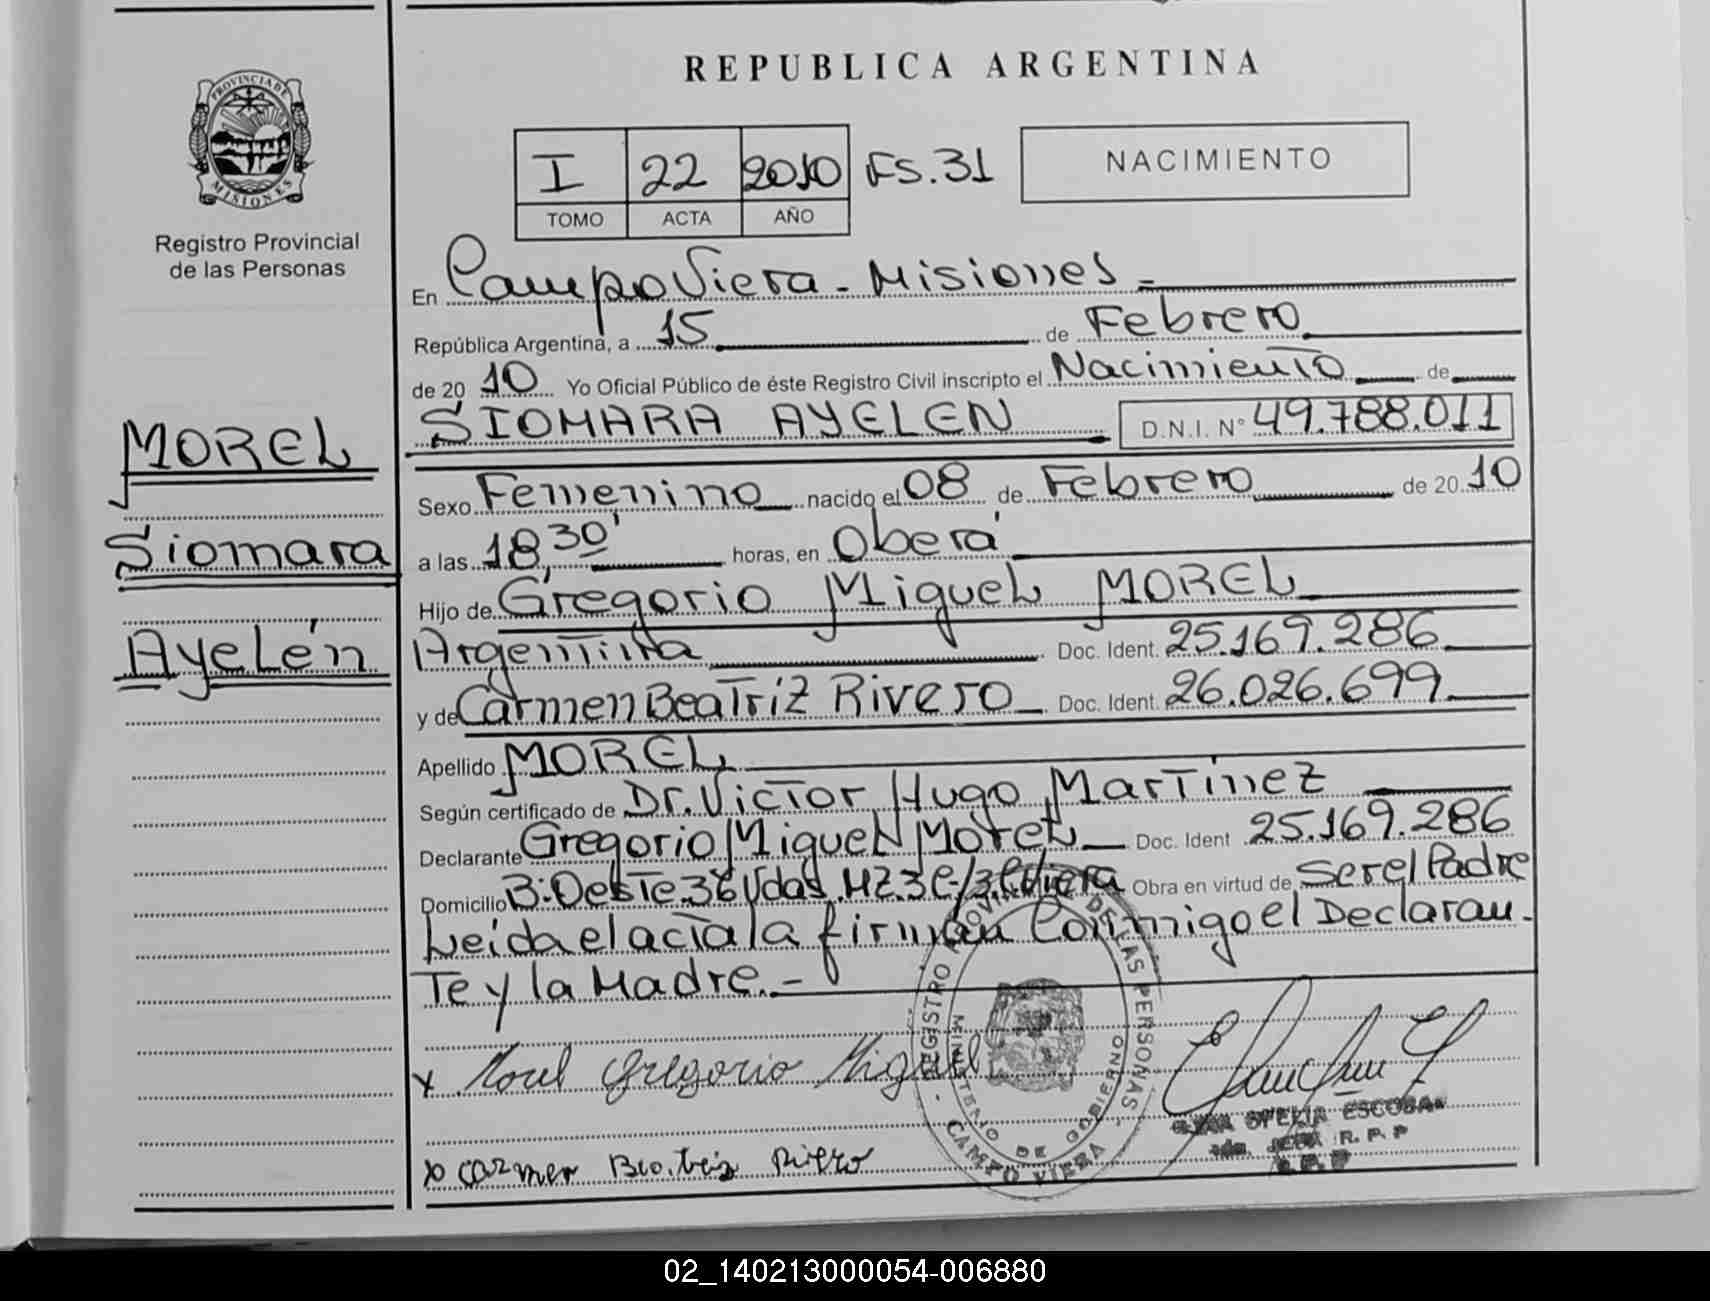 PROVINCIA DE
MISIONES
Registro Provincial
de las Personas
MOREL
Siomara
Ayelén
REPUBLICA ARGENTINA
I 22 2010 FS.31 NACIMIENTO
TOMO ACTA AÑO
En Campo Viera - Misiones -
República Argentina, a 15 de Febrero
de 20 10 Yo Oficial Público de éste Registro Civil inscripto el Nacimiento de
SIOMARA AYELEN D.N.I. N° 49.788.011
Sexo Femenino nacido el 08 de Febrero de 20 10
a las 18,30' horas, en Oberá
Hijo de Gregorio Miguel MOREL
Argentina Doc. Ident. 25.169.286
y de Carmen Beatriz Rivero Doc. Ident. 26.026.699
Apellido MOREL
Según certificado de Dr. Victor Hugo Martínez
Declarante Gregorio Miguel Morel Doc. Ident 25.169.286
Domicilio B: Oeste 36 Vdas. MZ.3 C/3 C. Viera Obra en virtud de Ser el Padre
Leida el acta la firman Conmigo el Declaran-
te y la Madre.-
x Morel Gregorio Miguel
x Carmen Beatriz Rivero
REGISTRO PROVINCIAL DE LAS PERSONAS
MINISTERIO DE GOBIERNO
CAMPO VIERA
OFELIA ESCOBAR
JEFA R.P.P
02_140213000054-006880